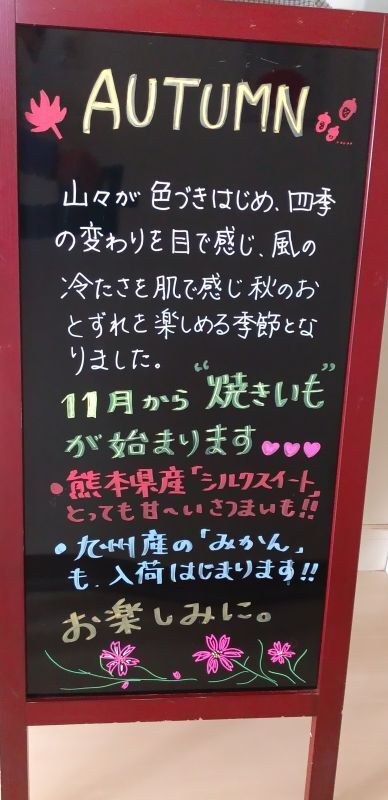 AUTUMN
山々が色づきはじめ、四季
の変わりを目で感じ、風の
冷たさを肌で感じ秋のお
とずれを楽しめる季節とな
りました。
11月から"焼きいも"
が始まります
•熊本県産「シルクスイート」
とっても甘〜いさつまいも!!
•九州産の「みかん」
も、入荷はじまります!!
お楽しみに。